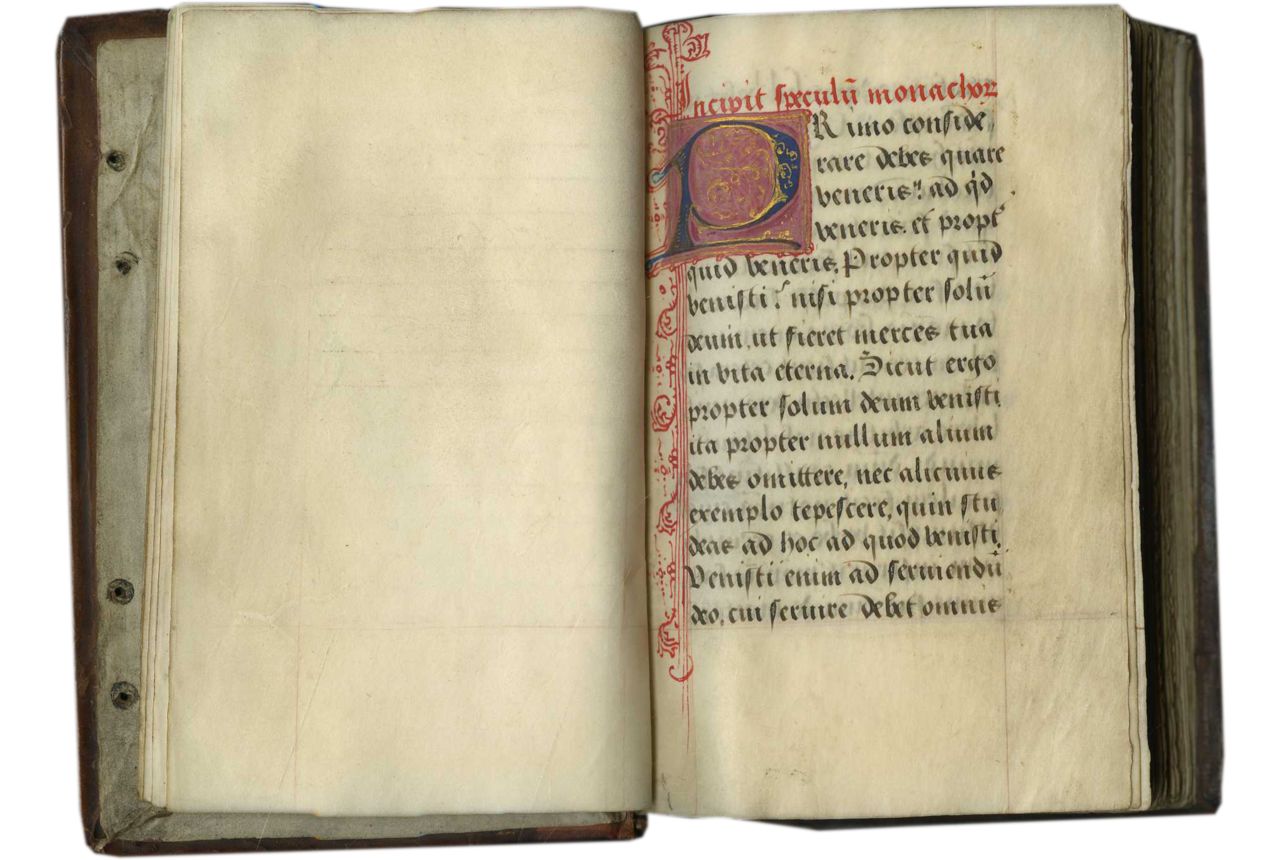 Incipit speculū monachoꝝ
PRimo conside
rare debes quare
veneris? ad qd
veneris. et propt
quid veneris. Propter quid
venisti? nisi propter solū
deum, ut fieret merces tua
in vita eterna. Sicut ergo
propter solum deum venisti
ita propter nullum alium
debes omittere, nec alicuius
exemplo tepescere, quin stu
deas ad hoc ad quod venisti.
Venisti enim ad seruiendū
deo, cui seruire debet omnis